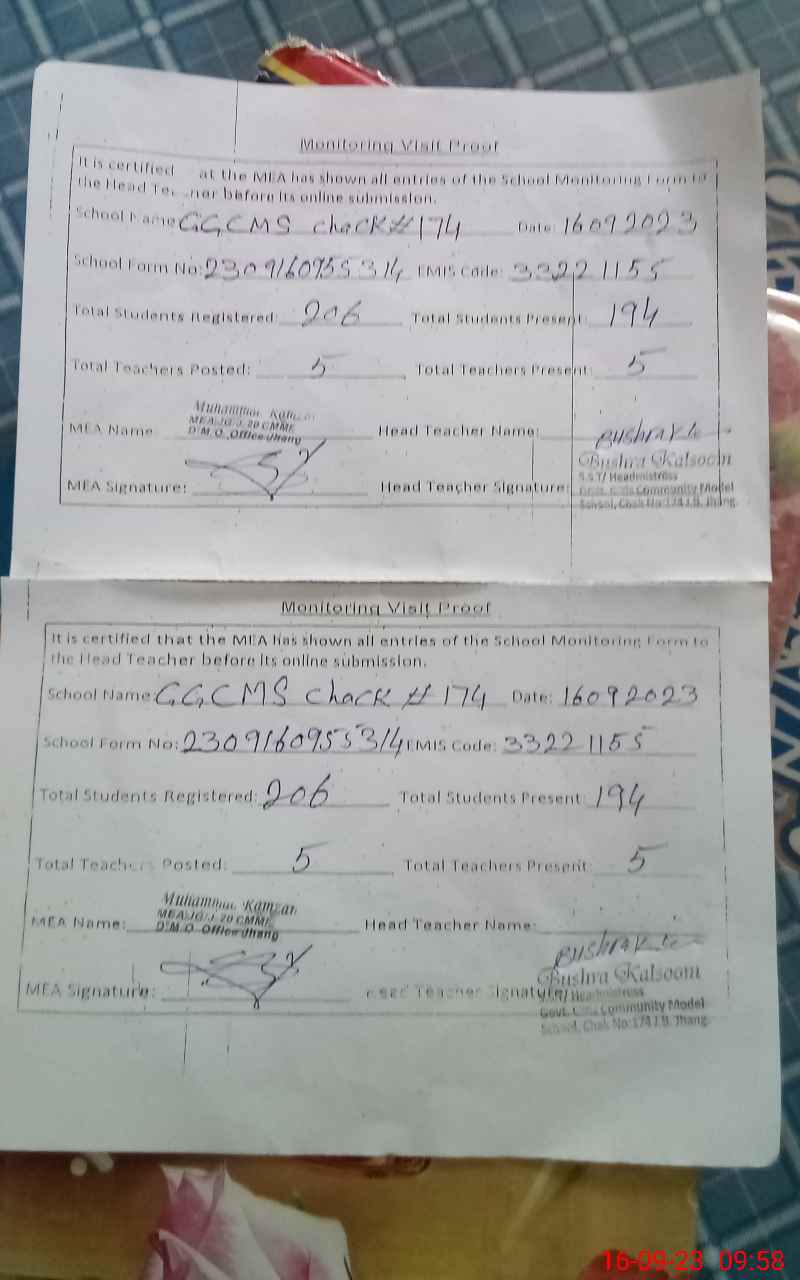 Monitoring Visit Proof
It is certified at the MEA has shown all entries of the School Monitoring Form to
the Head Te ner before its online submission.
School Name GGCMS chack# 174 Date: 16092023
School Form No: 2309160955314 EMIS Code: 33221155
Total Students Registered: 206 Total Students Present: 194
Total Teachers Posted: 5 Total Teachers Present: 5
Muhammad
MEA Name: D.M.O. Office Jhang Head Teacher Name: Bushra
Bushra Kalsoom
MEA Signature: Head Teacher Signature: S.S.T/ Headmistress
Govt. Girls Community Model
School, Chak No:174 J.B. Jhang.
Monitoring Visit Proof
It is certified that the MEA has shown all entries of the School Monitoring Form to
the Head Teacher before its online submission.
School Name: GGCMS chack # 174 Date: 16092023
School Form No: 2309160955314 EMIS Code: 33221155
Total Students Registered: 206 Total Students Present: 194
Total Teachers Posted: 5 Total Teachers Present: 5
Muhammad
MEA Name: D.M.O. Office Jhang Head Teacher Name:
Bushra
Bushra Kalsoom
MEA Signature: Head Teacher Signature: Headmistress
Govt. Girls Community Model
School, Chak No:174 J.B. Jhang.
16-09-23 09:58